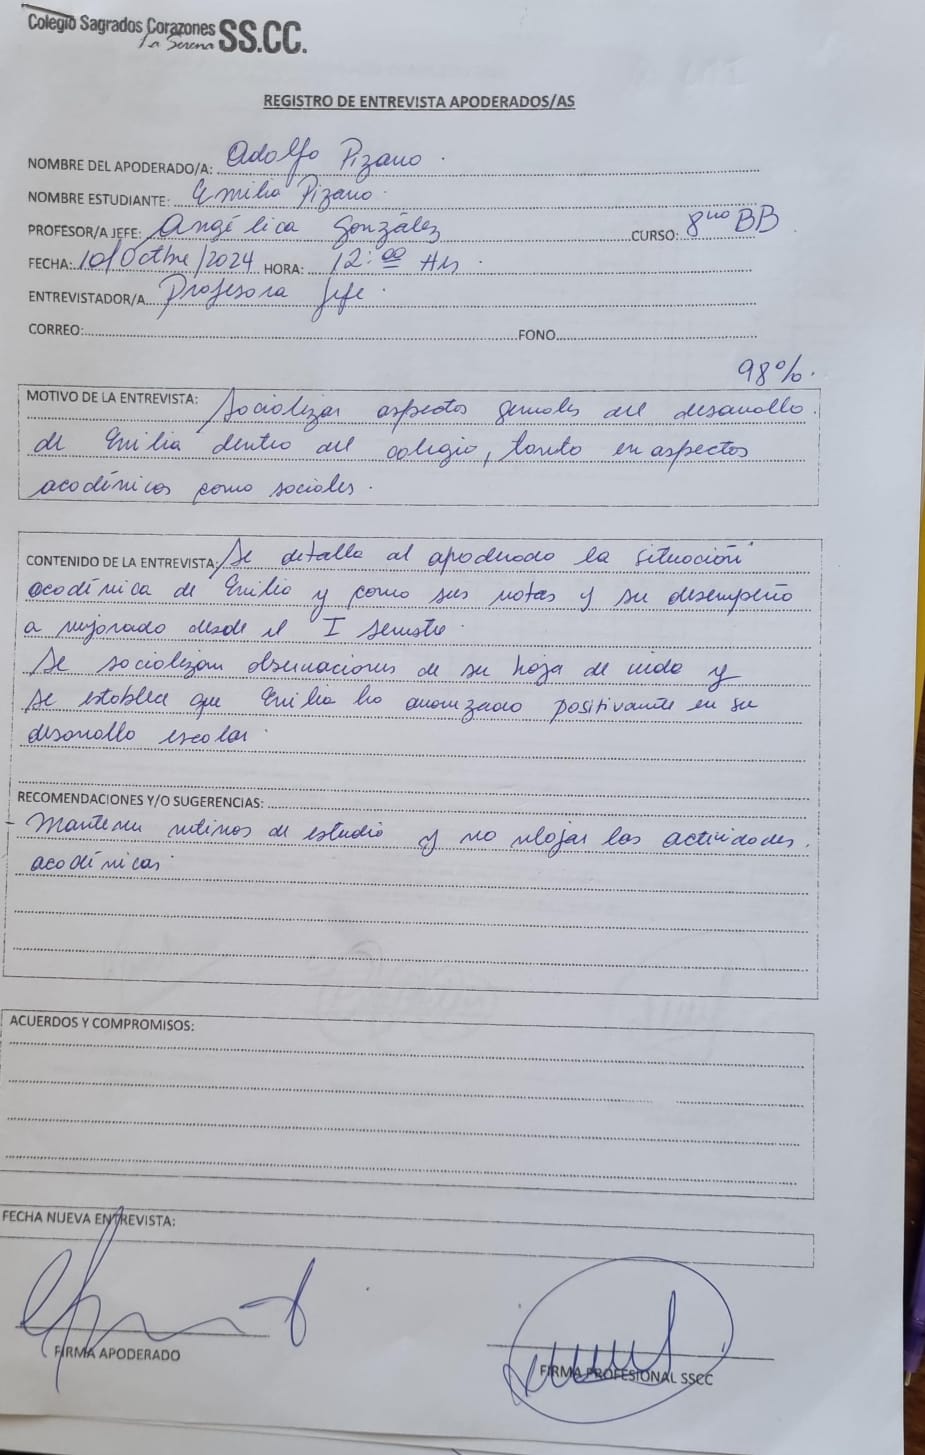 Colegio Sagrados Corazones SS.CC.
La Serena
REGISTRO DE ENTREVISTA APODERADOS/AS
NOMBRE DEL APODERADO/A: Adolfo Pizano.
NOMBRE ESTUDIANTE: Emilia Pizano.
PROFESOR/A JEFE: Angélica González CURSO: 8vo BB
FECHA: 10/Octbre/2024 HORA: 12:00 Hrs.
ENTREVISTADOR/A Profesora Jefe.
CORREO: FONO
98%.
MOTIVO DE LA ENTREVISTA: Socializar aspectos generales del desarrollo
de Emilia dentro del colegio, tanto en aspectos
académicos como sociales.
CONTENIDO DE LA ENTREVISTA: Se detalla al apoderado la situación
académica de Emilia y como sus notas y su desempeño
a mejorado desde el I semestre.
Se socializan observaciones de su hoja de vida y
se establece que Emilia ha avanzado positivamente en su
desarrollo escolar.
RECOMENDACIONES Y/O SUGERENCIAS:
- Mantener rutinas de estudio y no relajar las actividades
académicas.
ACUERDOS Y COMPROMISOS:
FECHA NUEVA ENTREVISTA:
FIRMA APODERADO
FIRMA PROFESIONAL SSCC